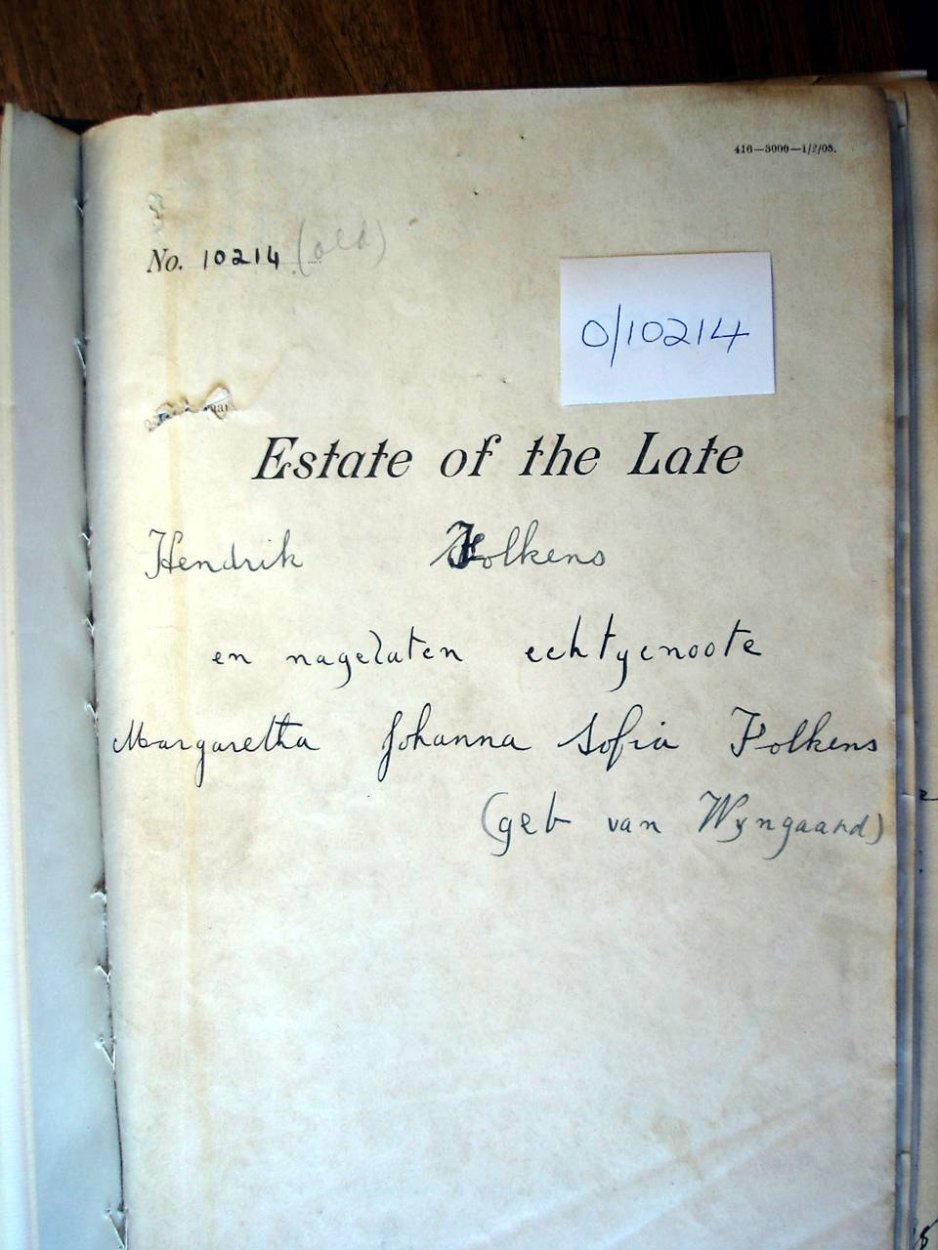 416—3000—1/2/05.
No. 10214 (old)
0/10214
Estate of the Late
Hendrik Folkens
en nagelaten echtgenoote
Margaretha Johanna Sofia Folkens
(geb van Wyngaard)